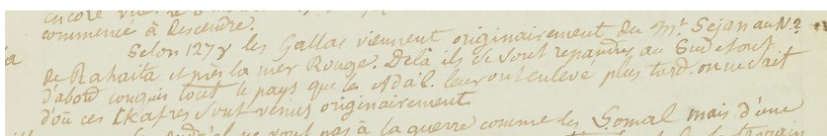 encore
commencé à descendre.
Selon 127 y les Gallas viennent originairement du Mt. Sejan au N.
de Rahaita et près la mer Rouge. Delà ils se sont repandus au Sud et ont
d'abord conquis tout le pays que les Adâl leur ont enlevé plus tard. on ne sait
d'où ces Ckafres sont venus originairement.
ne vont pas à la guerre comme les Somal mais d'une